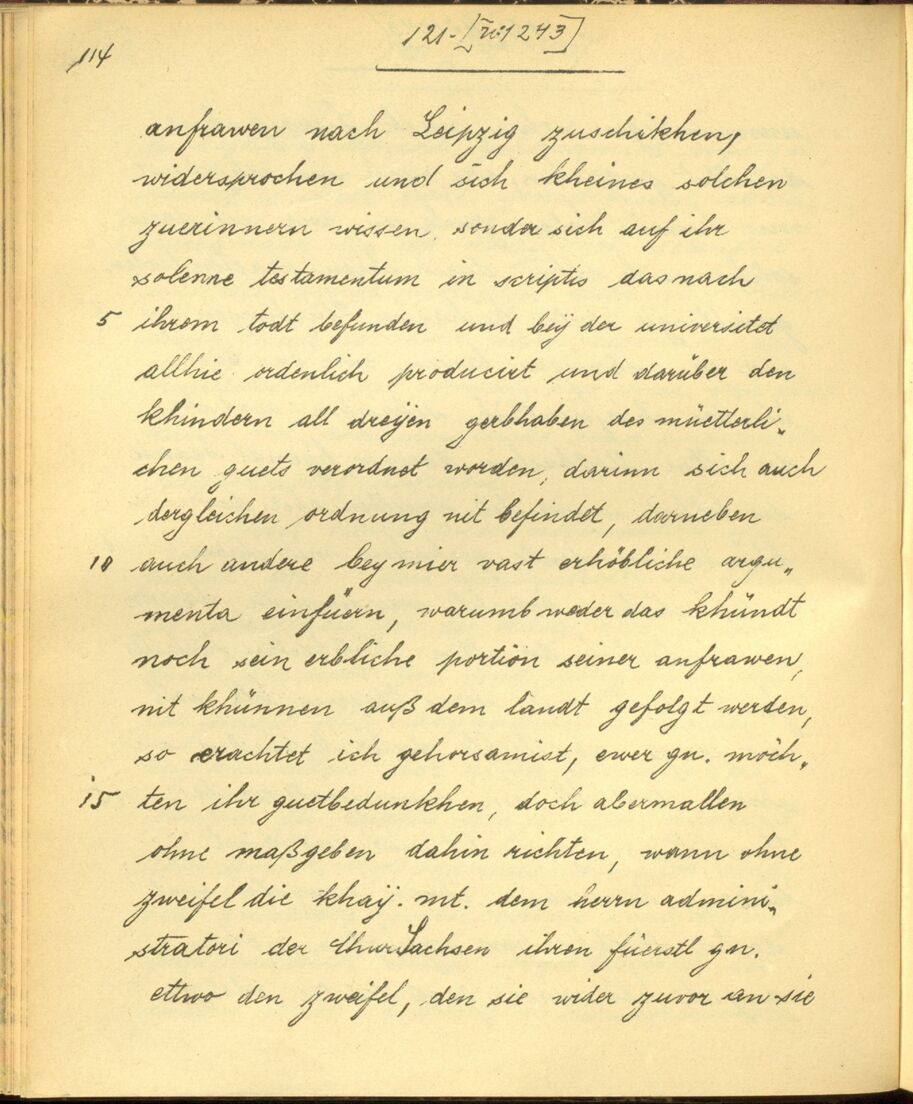 114
121-[nº:1243]
anfrawen nach Leipzig zuschikhen,
widersprochen und sich kheines solchen
zuerinnern wissen sonder sich auf ihr
solenne testamentum in scriptis das nach
5 ihrem todt befunden und beÿ der universitet
allhie ordenlich producirt und darüber den
khindern all dreÿen gerbhaben des müetterli„
chen guets verordnet worden, darinn sich auch
dergleichen ordnung nit befindet, darneben
10 auch andere bey mier vast erhöbliche argu„
menta einfüern, warumb weder das khündt
noch sein erbliche portion seiner anfrawen,
nit khünnen auß dem landt gefolgt werden,
so erachtet ich gehorsamist, ewer gn. möch„
15 ten ihr guetbedunkhen, doch abermallen
ohne maßgeben dahin richten, wann ohne
zweifel die khaÿ. mt. dem herrn admini„
stratori der ChurSachsen ihren füerstl gn.
ettwo den zweifel, den sie wider zuvor an sie